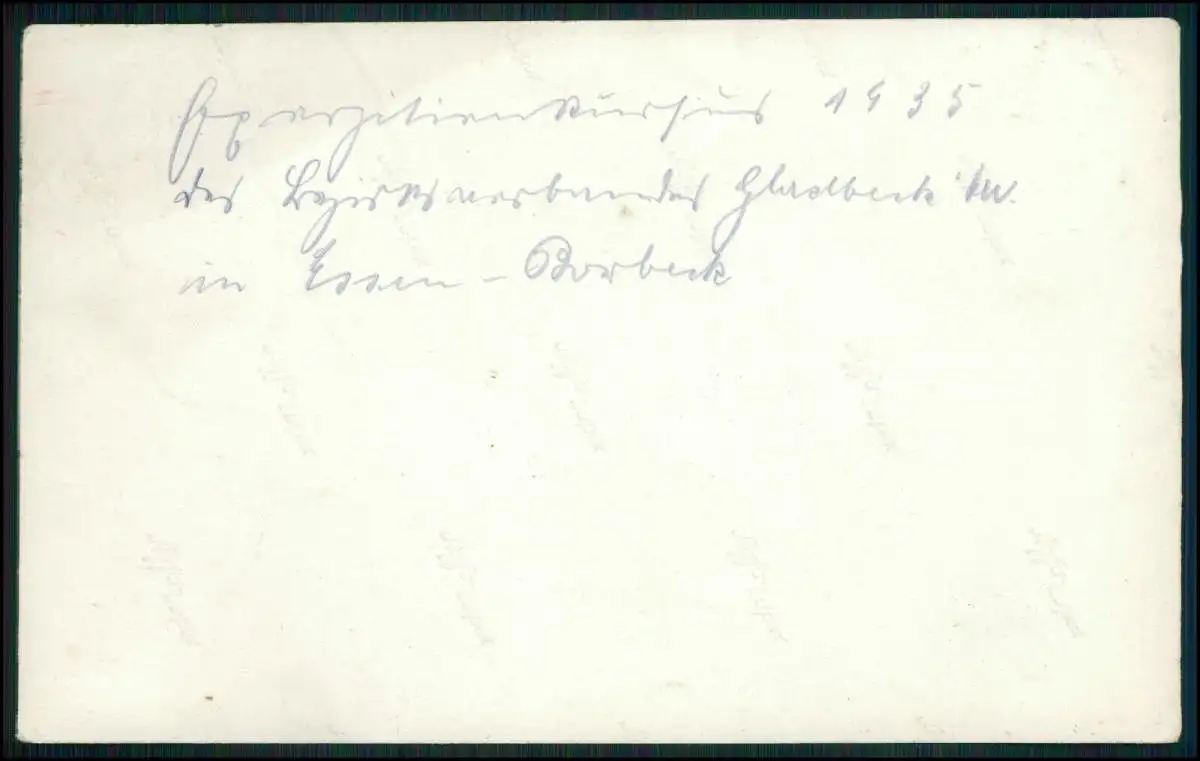 Exerzitienkursus 1935
des Bezirksverbandes Gladbeck i/W.
in Essen - Borbeck